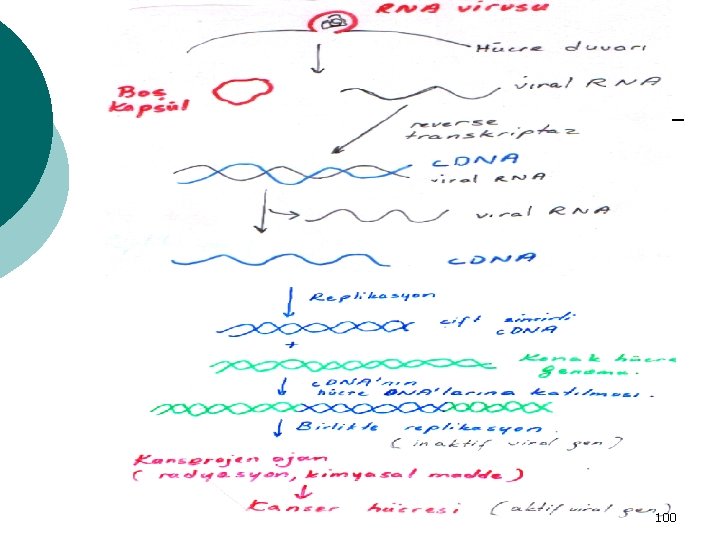 RNA virusu
Hücre duvarı
Boş
kapsül
viral RNA
reverse
transkriptaz
cDNA
viral RNA
viral RNA
cDNA
Replikasyon
çift zincirli
cDNA
+
Konak hücre
genomu.
cDNA'nın
hücre DNA'larına katılması.
Birlikte replikasyon.
(inaktif viral gen)
Kanserojen ajan
(radyasyon, kimyasal madde)
Kanser hücresi (aktif viral gen)
100